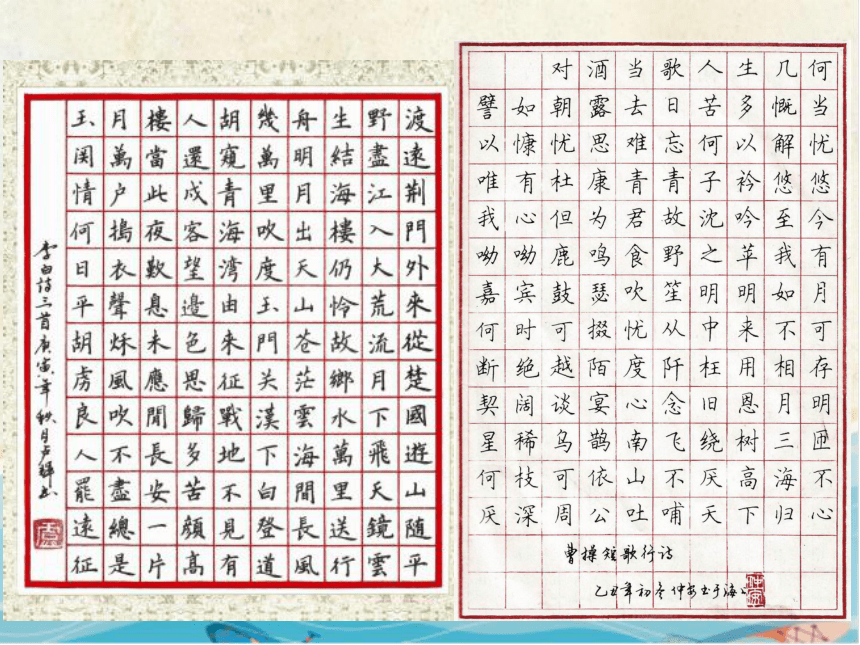 渡遠荆門外來從楚國遊山随平
野盡江入大荒流月下飛天鏡雲
生結海樓仍怜故鄉水萬里送行
舟明月出天山苍茫雲海間長風
幾萬里吹度玉門关漢下白登道
胡窺青海湾由来征戰地不見有
人還戍客望邊色思歸多苦顔高
樓當此夜歎息未應閒長安一片
月萬户搗衣聲秌風吹不盡總是
玉関情何日平胡虏良人罷遠征
李白诗三首庚寅年秋月卢辉书
对酒当歌人生几何
譬如朝露去日苦多慨当
以慷忧思难忘何以解忧
唯有杜康青青子衿悠悠
我心但为君故沈吟至今
呦呦鹿鸣食野之苹我有
嘉宾鼓瑟吹笙明明如月
何时可掇忧从中来不可
断绝越陌度阡枉用相存
契阔谈宴心念旧恩月明
星稀乌鹊南飞绕树三匝
何枝可依山不厌高海不
厌深周公吐哺天下归心
曹操短歌行诗
乙丑年初冬仲安书于海上